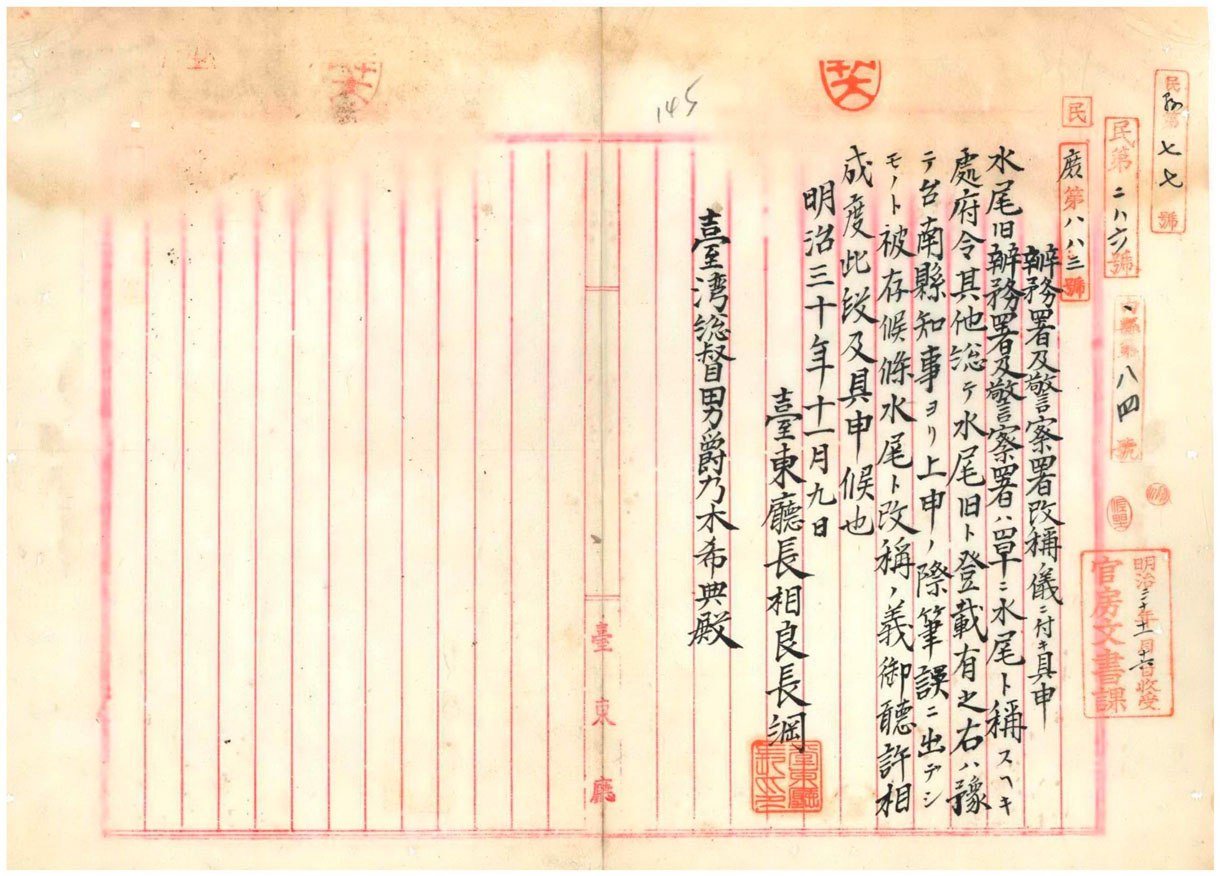 145
民第七七號
民第二八六號
八四號
民
第八八三號
明治三十年十一月 日收受
官房文書課
辦務署及警察署改稱ノ儀ニ付キ具申
水尾旧辦務署及警察署ハ單ニ水尾ト稱スヘキ
處府令其他総テ水尾旧ト登載有之右ハ豫
テ台南縣知事ヨリ上申ノ際筆誤ニ出デシ
モノト被存候條水尾ト改稱ノ義御聽許相
成度此段及具申候也
明治三十年十一月九日
臺東廳長相良長綱
臺東廳長之印
臺湾総督男爵乃木希典殿
臺東廳